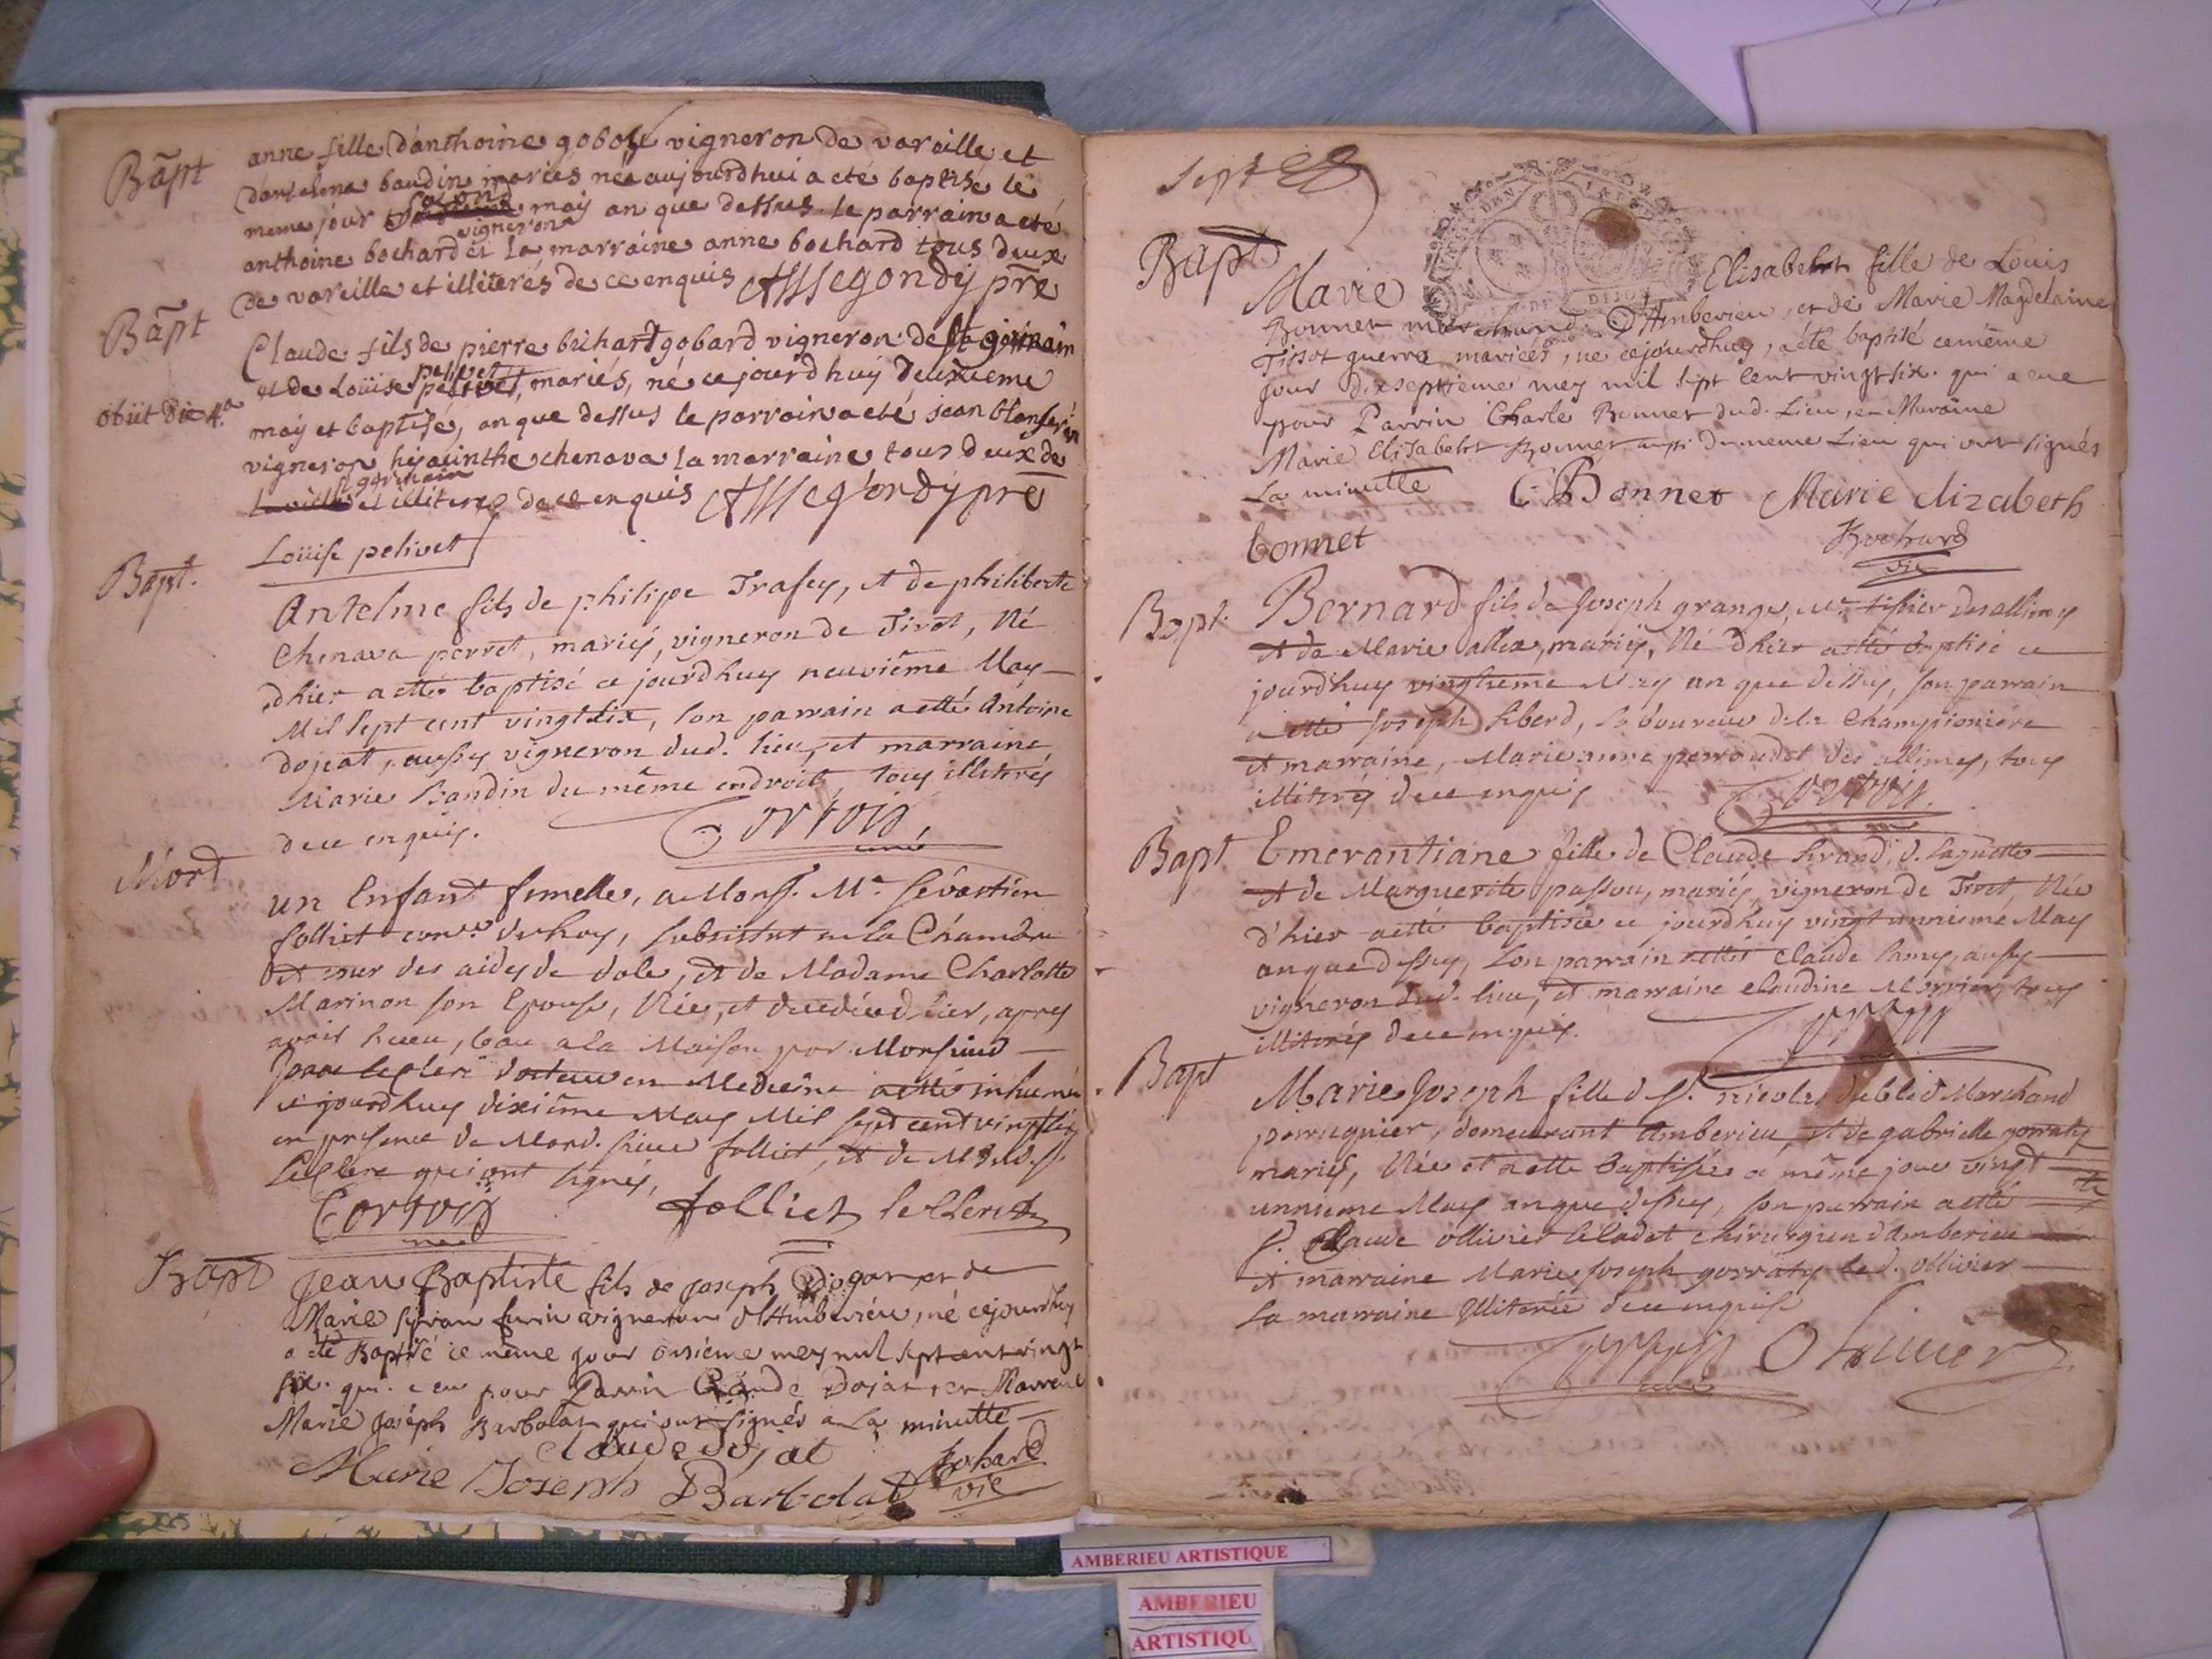 Bapt
anne fille d'anthoine gobole vigneron de vareille et
danthelme baudin mariés née aujourdhui a eté baptisé le
meme jour second may an que dessus. le parrain a eté
anthoine bochard vigneron et la marraine anne bochard tous deux
de vareille et illiterés de ce enquis ASSegondy pre
Bapt
Claude fils de pierre bichard gobard vigneron de st germain
et de Loüise pelivet, mariés, né ce jourd huy deuxieme
obiit die 4a
may et baptisé, an que dessus le parrain a eté jean
vigneron hyacinthe chenava la marraine tous deux de
st germain et illiteres de ce enquis ASSegondy pre
Loüise pelivet
Bapt.
Antelme fils de philipe Trafey, et de philiberte
Chenava perret, mariés, vigneron de Tiret, Né
dhier a etté baptisé ce jourdhuy neuvième May
Mil sept cent vingt six, son parrain a etté Antoine
dojeat, aussy vigneron dud. lieu, et marraine
Marie Baudin du même endroit, tous illiterés
de ce enquis. Cortois
Mort
un Enfant femelle, a Mons. Me Sébastien
folliet du Roy, substitut en la Chambre
et cour des aides de dole, et de Madame Charlotte
Marinon son Epouse, Née, et decedée d'hier, apres
avoir Receu, l'eau a la Maison par Monsieur
leclerc docteur en Medecine a etté inhumé
ce jourdhuy dixième May Mil sept cent vingt six
en presence de Mond. sieur folliet, et de
Leclerc qui ont signés,
Cortois folliet leclerc
Bapt
Jean Baptiste fils de Joseph Dojat et de
Marie vigneron d'Amberieu, né cejourdhuy
a eté Baptisé ce même jour onsième mey mil sept cent vingt
six. qui a eu pour Parrin Claude Dojat, et Marreine
Marie Joseph Barbolat qui ont signés a La minutte
claude dojat
Marie Joseph Barbolat Bochard
vic
Sept
Bapt
DIJON
Marie Elisabeht fille de Louis
Bonnet marchand D'Amberieu, et de Marie Magdelaine
Tissot guerre mariés, né cejourdhuy, a été baptisé ce même
jour dixseptieme mey mil sept cent vingt six. qui a eue
pour Parrin Charle Bonnet dud. Lieu, et Maraine
Marie Elisabeht Bonnet aussi du meme Lieu qui ont signés
La minutte C Bonnet Marie elizabeth
bonnet Bochard
vic
Bapt.
Bernard fils de Joseph grange, me tissier des allimes
et de Marie allex, mariés, Né dhier a etté baptisé ce
jourdhuy vingtieme May an que dessus, son parrain
a etté Joseph liberd, laboureur de la Championiere
et marraine, Marie anne perroudet des allimes, tous
illiterés de ce enquis Cortois.
Bapt
Emerantiane fille de Claude
et de Marguerite passou, mariés, vigneron de Tiret, Née
d'hier a etté baptisée ce jourdhuy vingt unnieme May
an que dessus, Son parrain a etté Claude aussy
vigneron dud. lieu, et marraine Claudine tous
illiterés de ce enquis. Cortois
Bapt
Marie Joseph fille d S. nicolas dubled Marchand
perruquier, demeurant Amberieu, et de gabrielle gorraty
mariés, Née et a etté baptisée ce même jour vingt
unnieme May an que dessus, son parrain a etté
S. Claude ollivier le Cadet chirurgien d'Amberieu
et marraine Marie Joseph gorraty led. ollivier
La marraine illiterée de ce enquise
Cortois Olivier
AMBERIEU ARTISTIQUE
AMBERIEU
ARTISTIQU